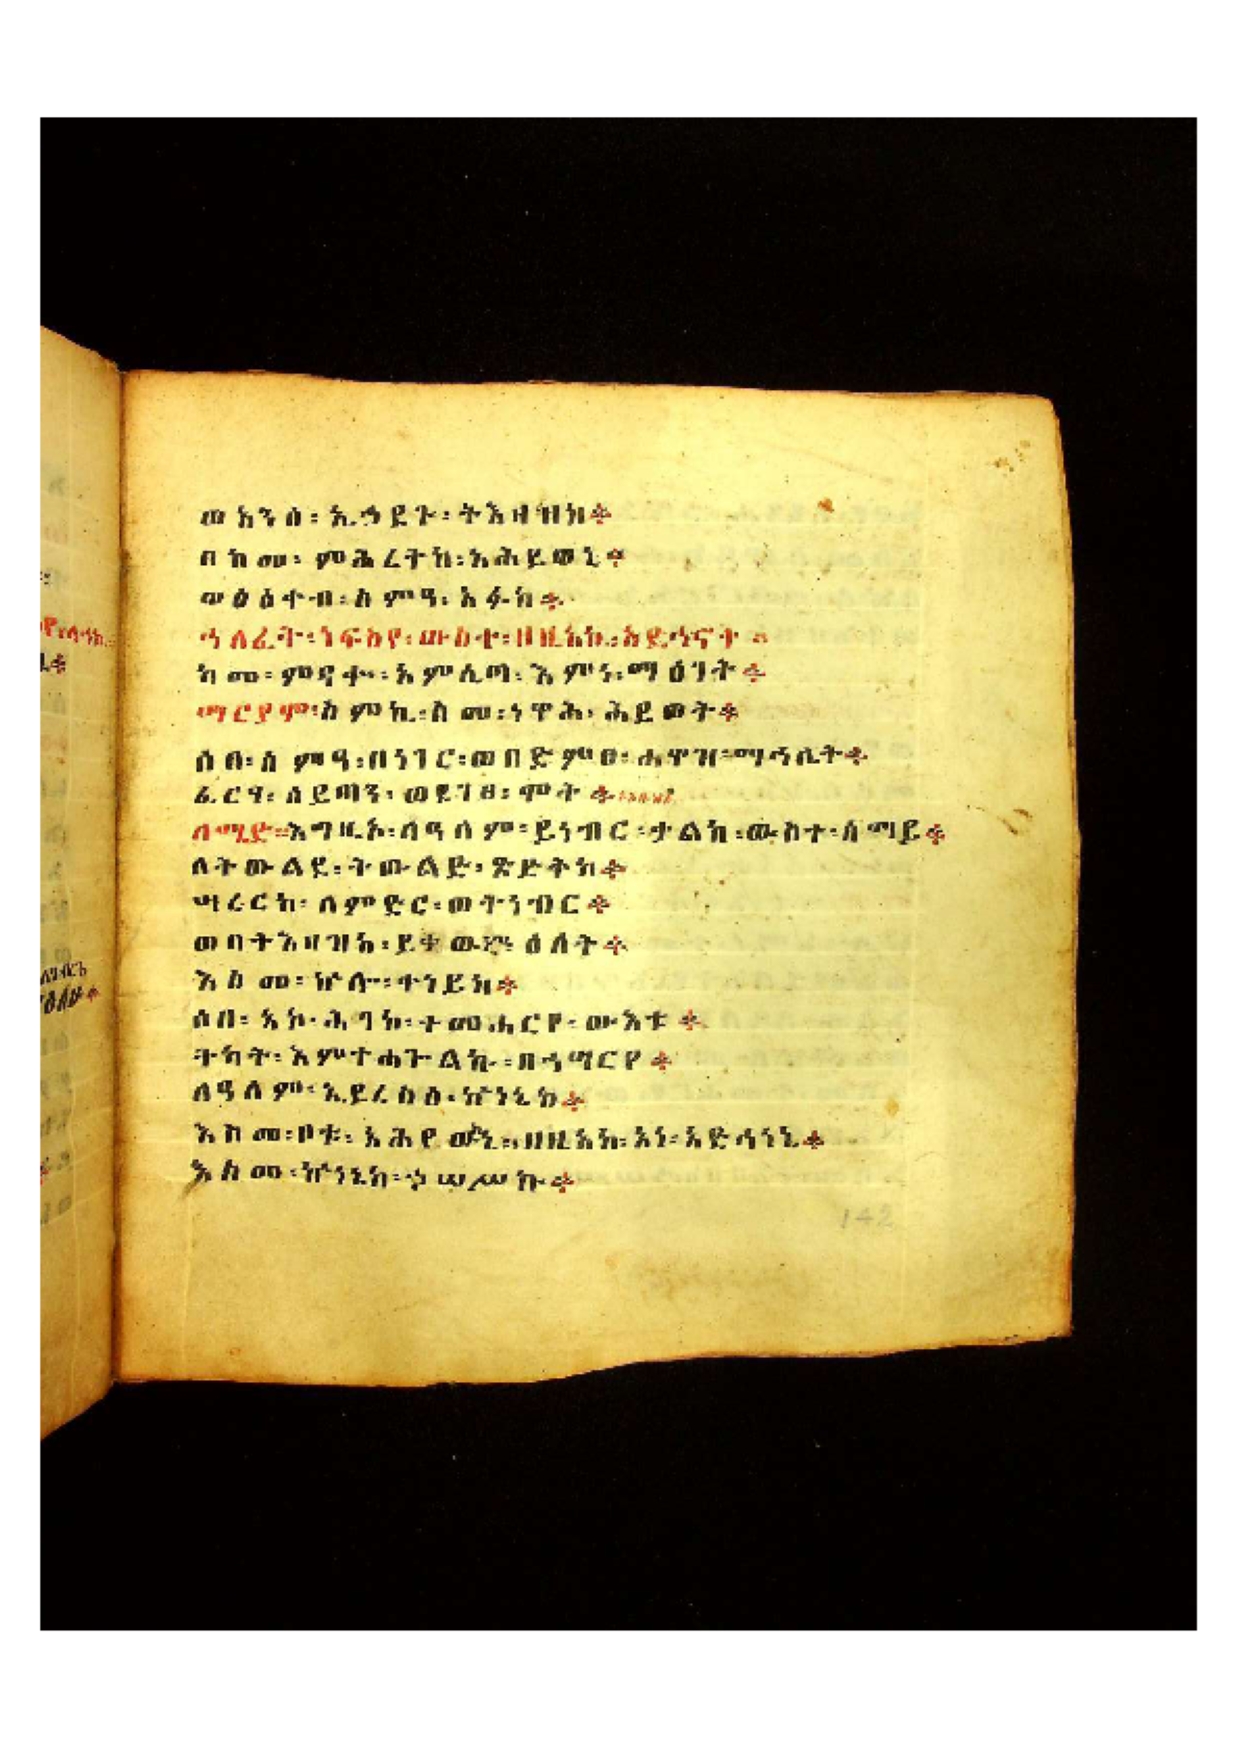 ወአንሰ፡ ኢኀደጉ፡ ትእዛዝከ፨
በከመ፡ ምሕረትከ፡ አሕይወኒ፨
ወዕዕቀብ፡ ስምዓ፡ አፉከ፨
ኀለፈት፡ ነፍስየ፡ ውስተ፡ ዘዚአኪ፡ አድኅኖት፨
ከመ፡ ምዳቍ፡ አምሊጣ፡ እምነ፡ ማዕገት፨
ማርያም፡ ስምኪ፡ ስመ፡ ነዋሕ፡ ሕይወት፨
ሰቦ፡ ሰምዓ፡ በነገር፡ ወበድምፀ፡ ሐዋዝ፡ ማኅሌት፨
ፈርሃ፡ ሰይጣን፡ ወደንፀ፡ ሞት፨
ላሜድ፡ እግዚኦ፡ ለዓለም፡ ይነብር፡ ቃልከ፡ ውስተ፡ ሰማይ፨
ለትውልደ፡ ትውልድ፡ ጽድቅከ፨
ሣረርከ፡ ለምድር፡ ወትነብር፨
ወበትእዛዝከ፡ ይቀውም፡ ዕለት፨
እስመ፡ ኵሉ፡ ተነይከ፨
ሶበ፡ አኮ፡ ሕግከ፡ ተመሐርየ፡ ውእቱ፨
ትካት፡ እምተሐጐልኩ፡ በኀሣርየ፨
ለዓለም፡ ኢይረስዕ፡ ኵነኔከ፨
እስመ፡ ቦቱ፡ አሕየውከኒ፡ ዘዚአከ፡ አነ፡ አድኅነኒ፨
እስመ፡ ኵነኔከ፡ ኀሠሥኩ፨
142